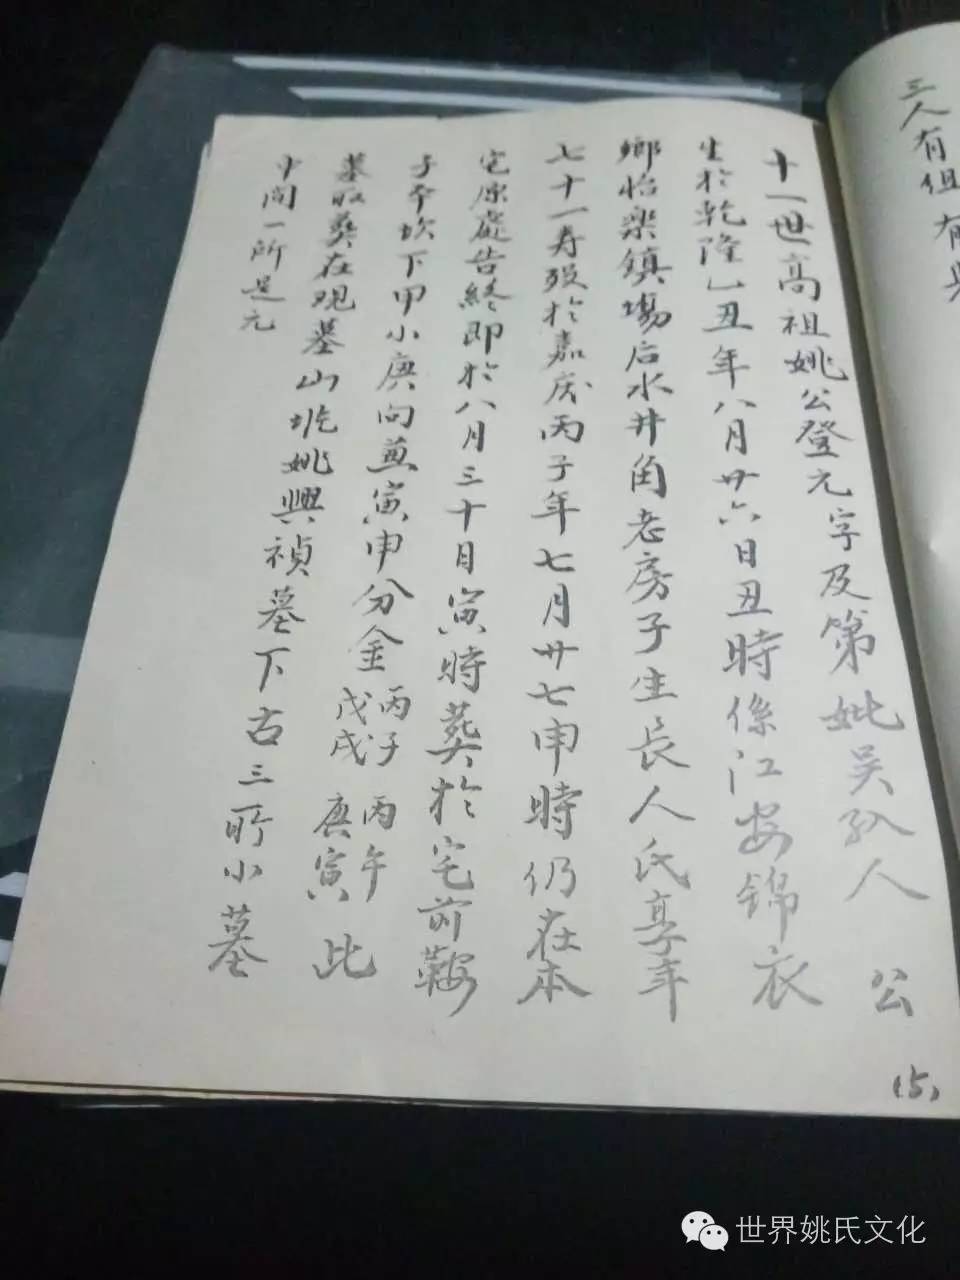 三人有组有
十一世高祖姚公登元字及第妣吴孺人 公
生於乾隆乙丑年八月廿六日丑時係江安錦衣
鄉怡樂鎮場后水井角老房子生長人氏享年
七十一寿殁於嘉庆丙子年七月廿七申時仍在本
宅原處告終即於八月三十日寅時葬於宅前鞍
子平坎下甲小庚向兼寅申分金 丙子 丙午
戊戌 庚寅 此
墓取葬在观墓山坉姚興禎墓下古三所小墓
中间一所是元
(5)
世界姚氏文化